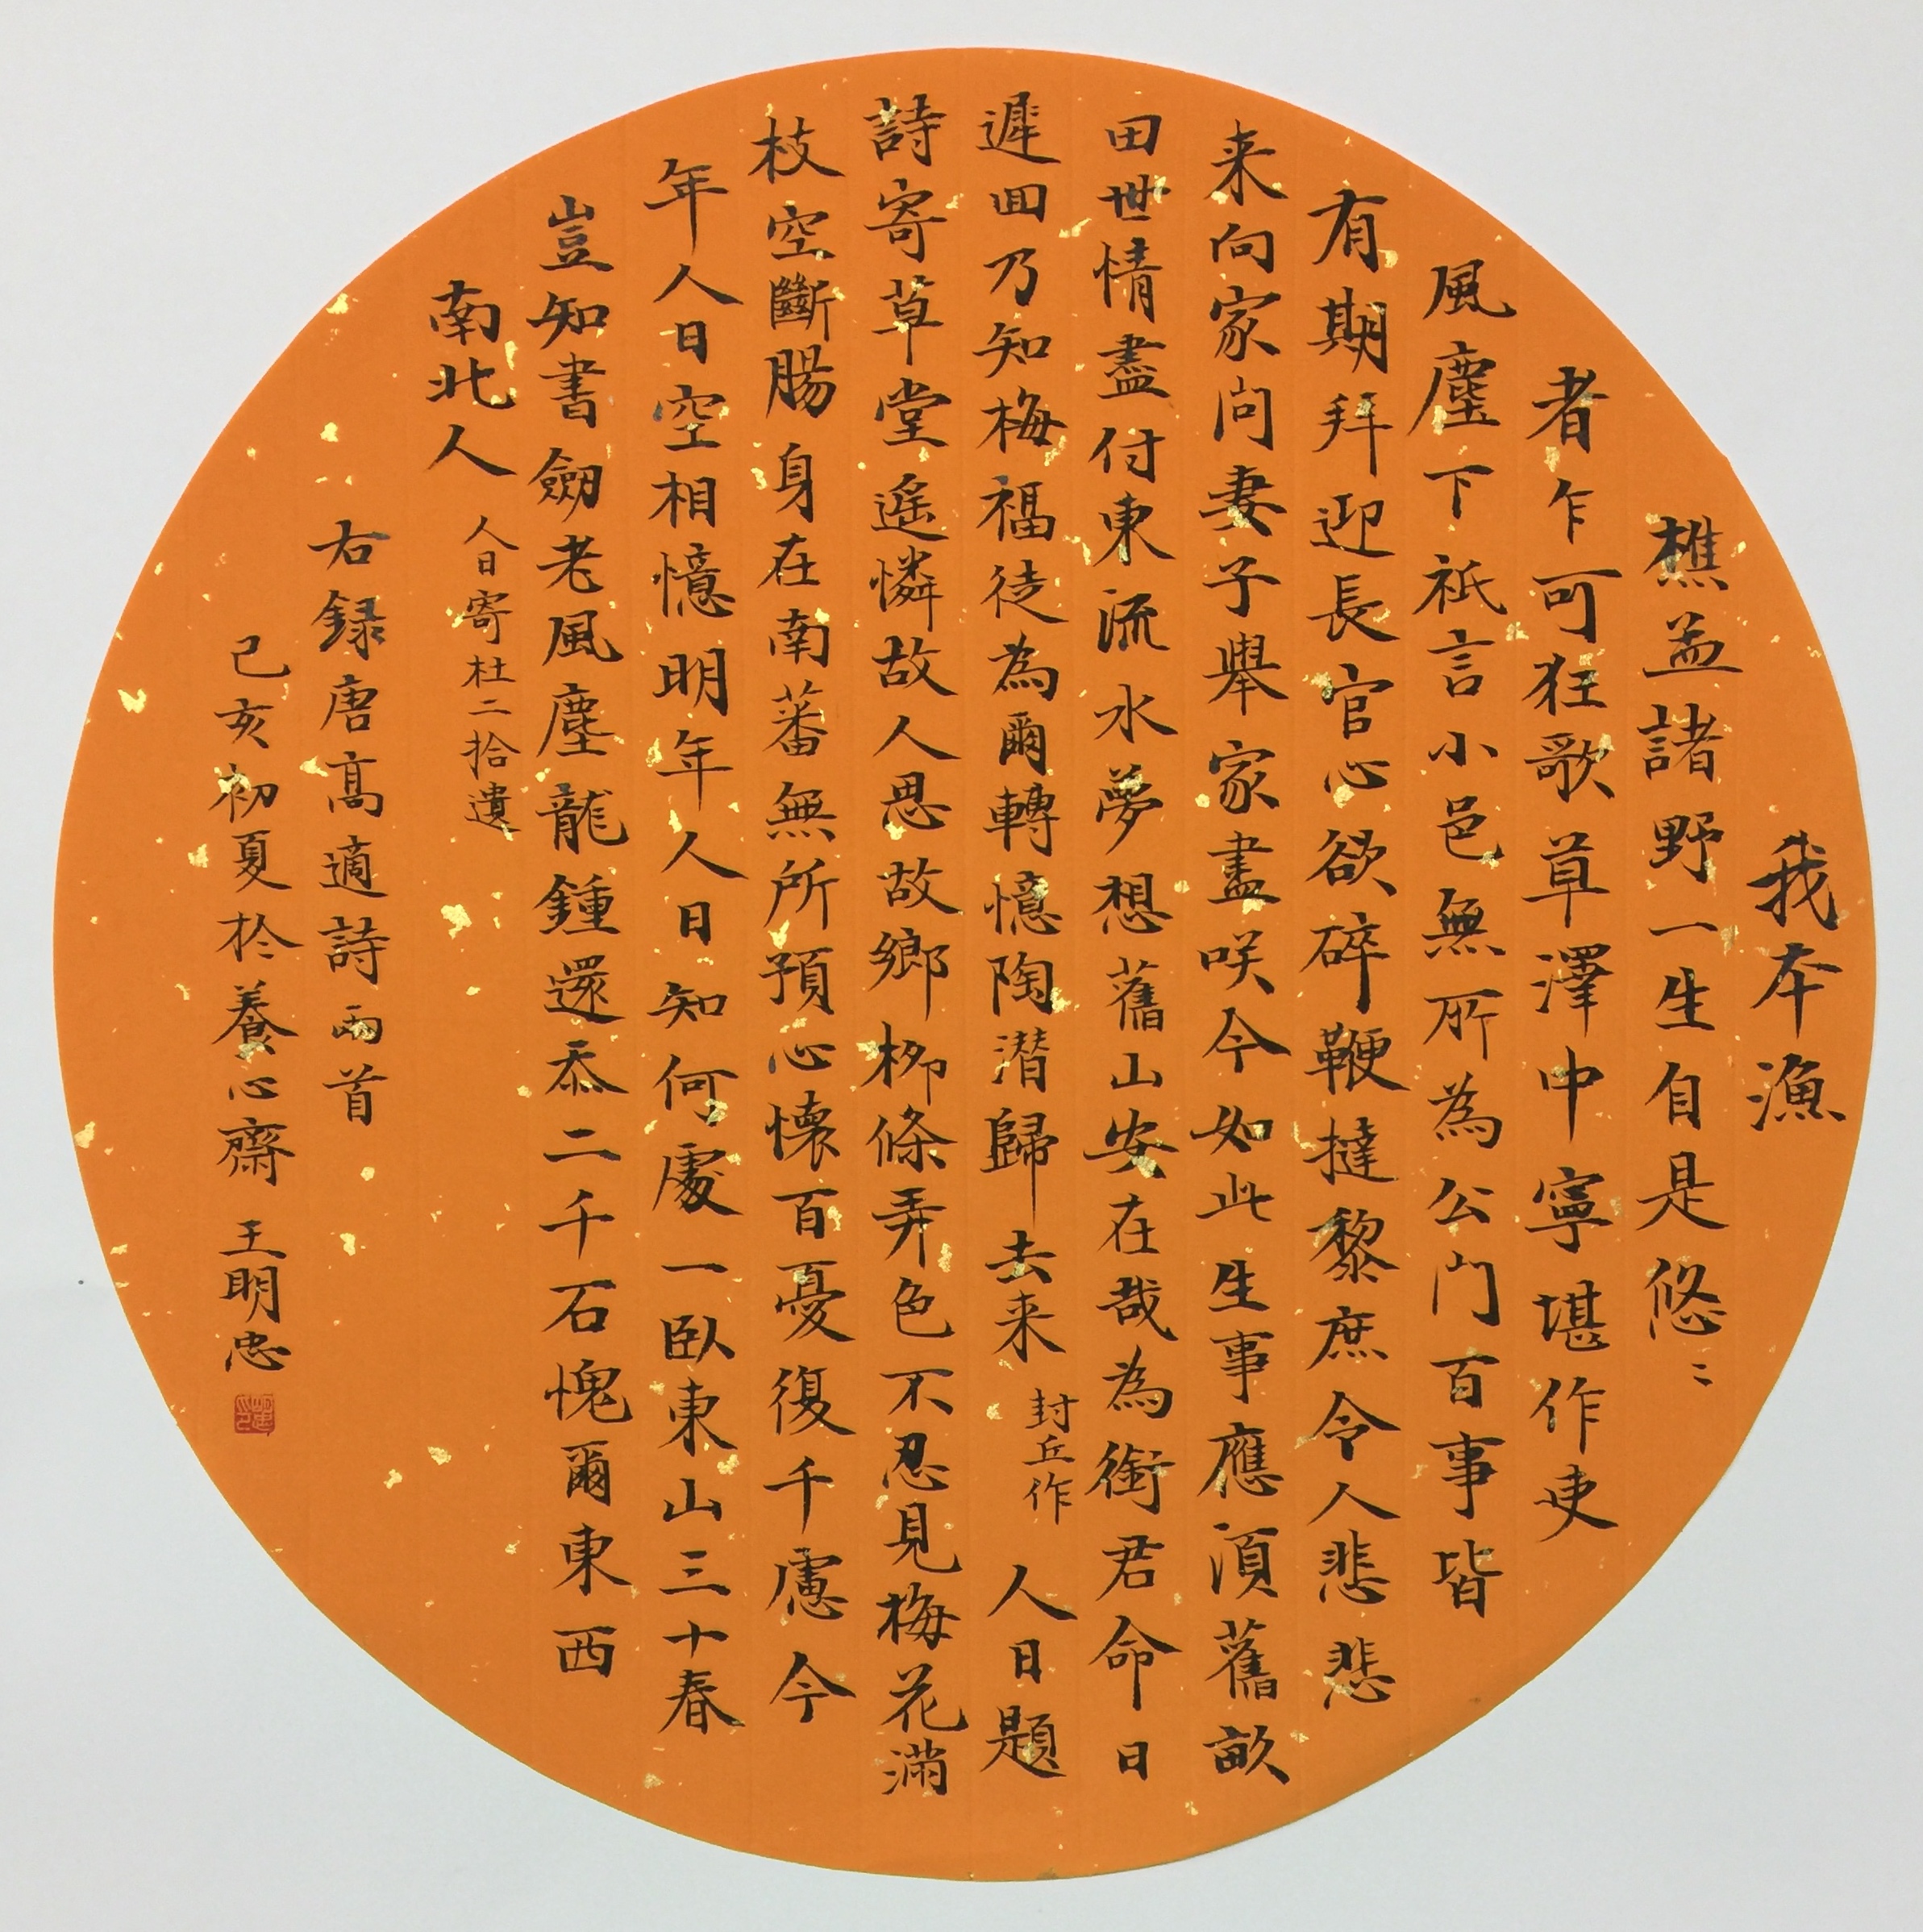 我本漁
樵孟諸野一生自是悠〻
者乍可狂歌草澤中寧堪作吏
風塵下祇言小邑無所為公門百事皆
有期拜迎長官心欲碎鞭撻黎庶令人悲悲
来向家問妻子舉家盡咲今如此生事應須舊畝
田世情盡付東流水夢想舊山安在哉為銜君命日
遲囬乃知梅福徒為爾轉憶陶潜歸去来 封丘作 人日題
詩寄草堂遥憐故人思故鄉栁條弄色不忍見梅花滿
枝空斷腸身在南蕃無所預心懷百憂復千慮今
年人日空相憶明年人日知何處一臥東山三十春
豈知書劒老風塵龍鍾還忝二千石愧爾東西
南北人
人日寄杜二拾遺
右録唐高適詩兩首
己亥初夏於養心齋 王明忠